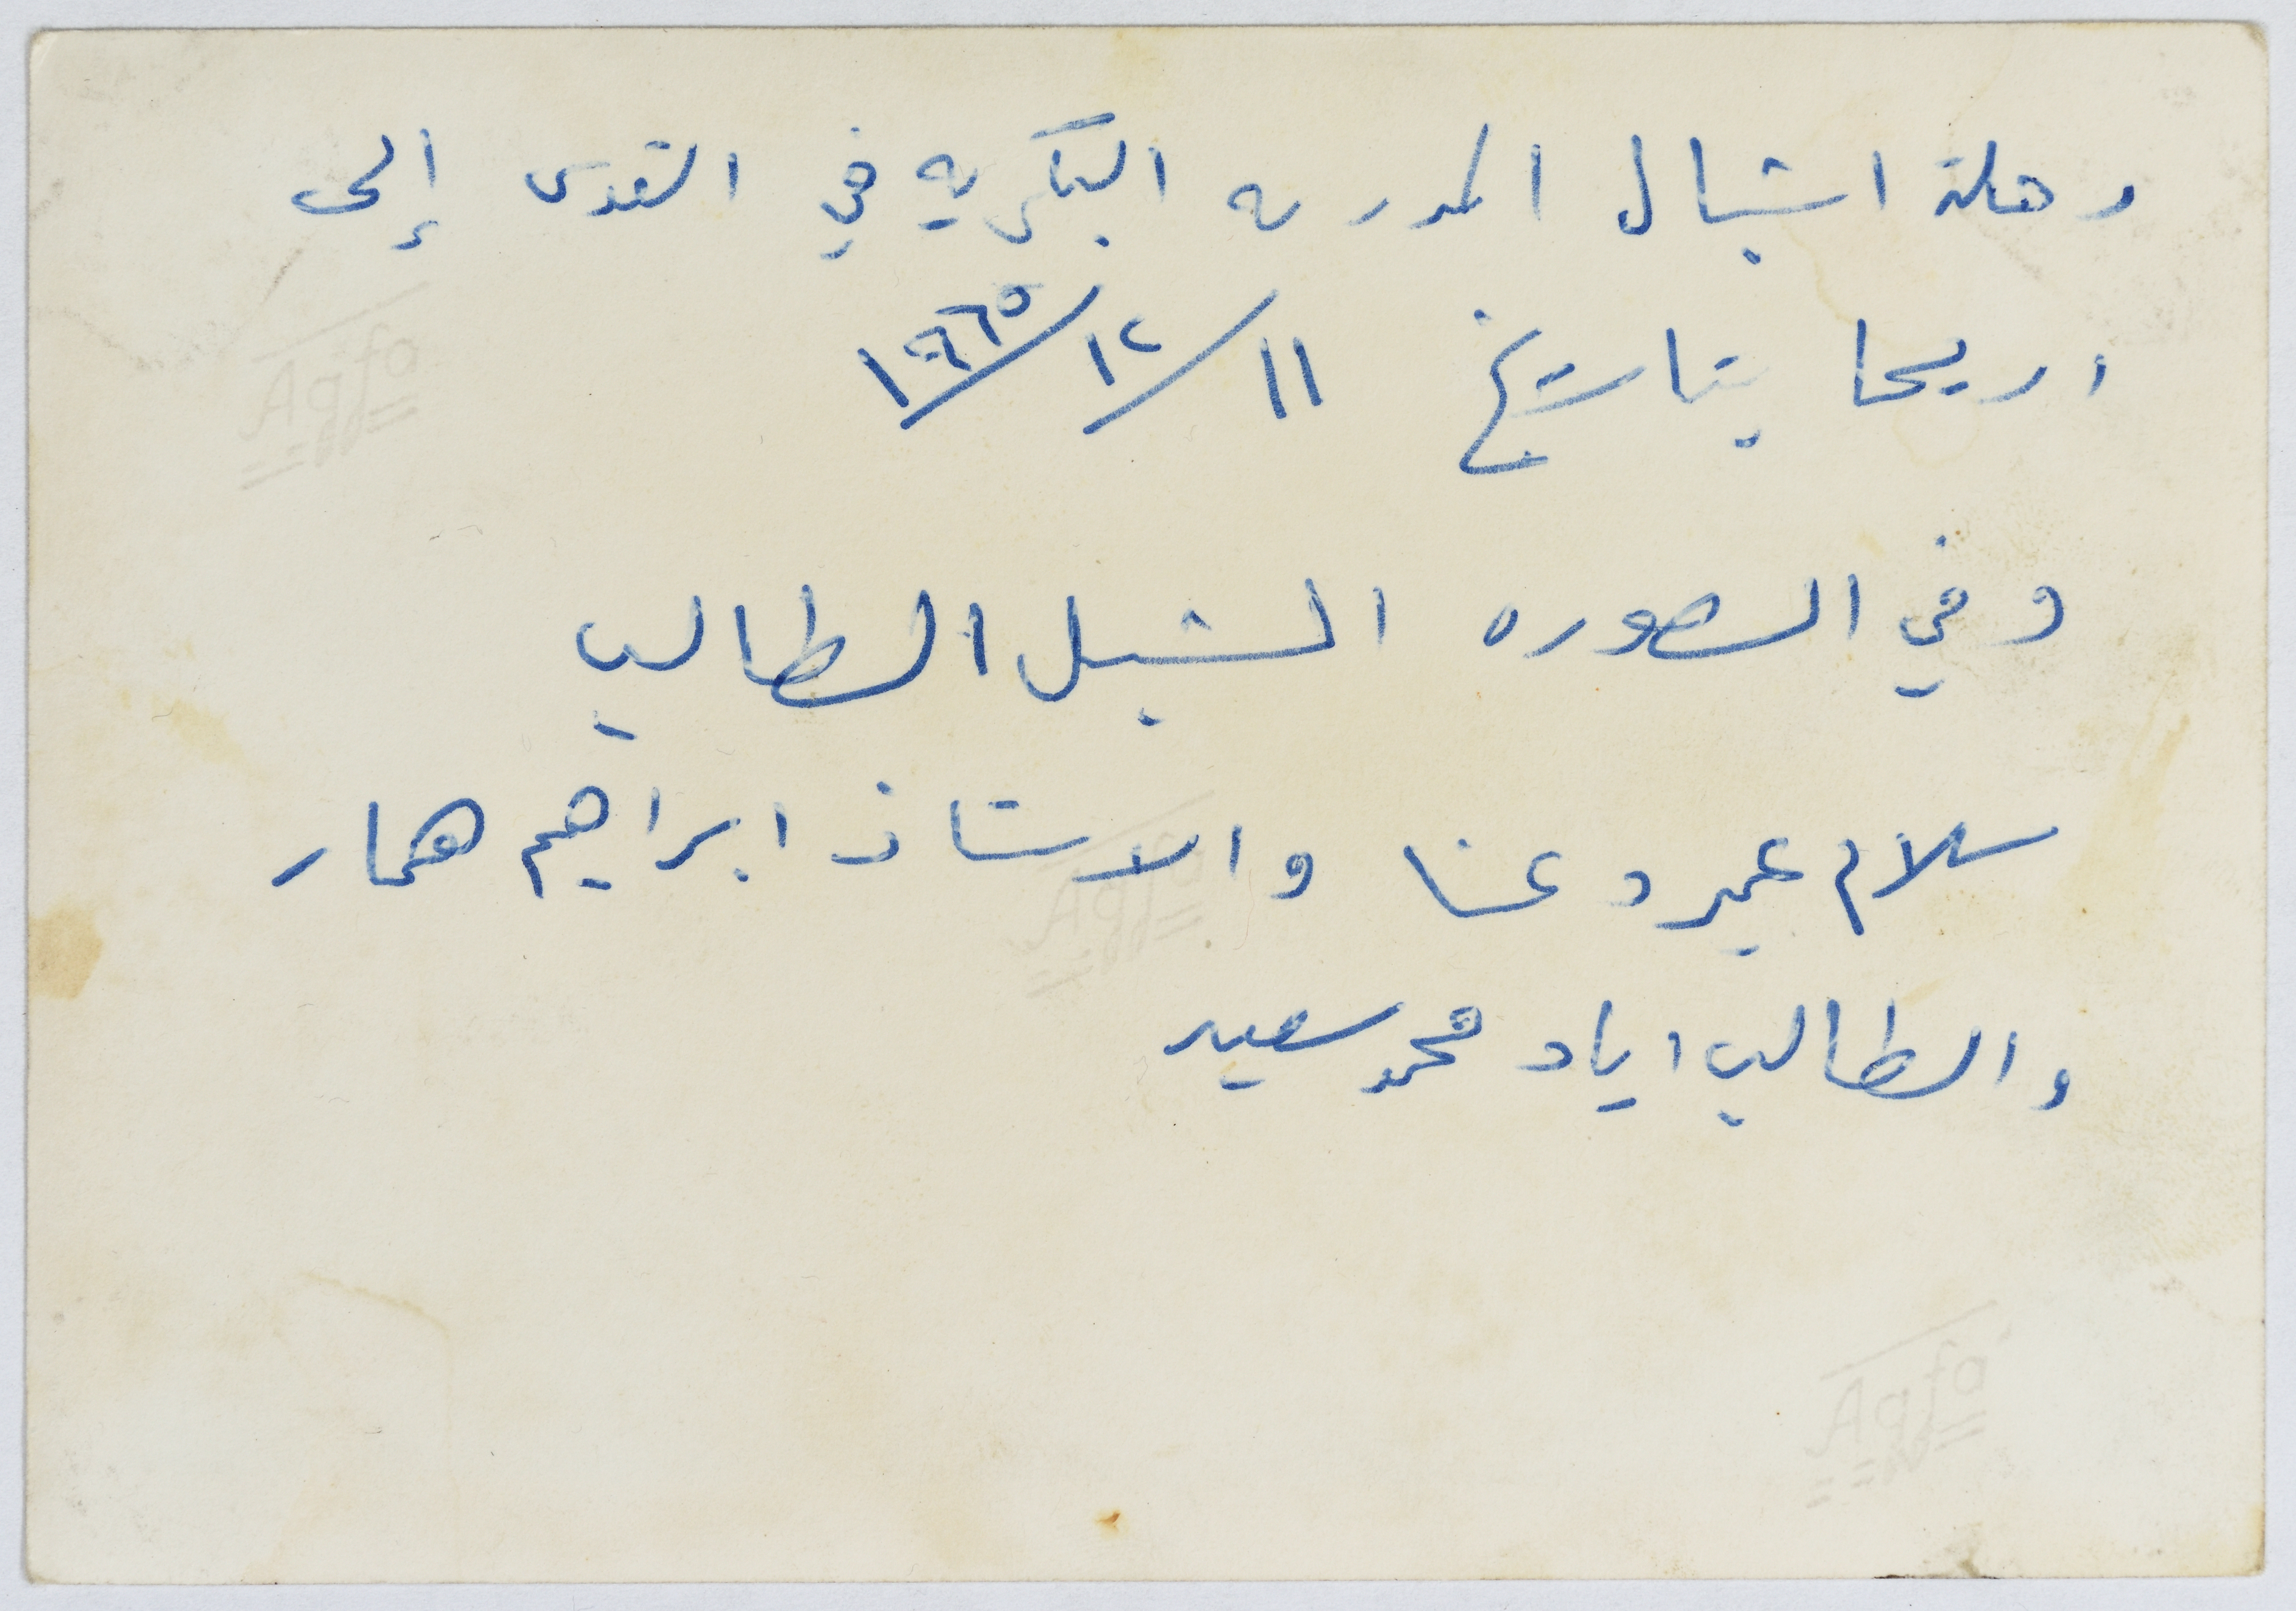 رحلة اشبال المدرسه البكريه في القدس إلى
اريحا بتاريخ ١١/١٢/١٩٦٥
وفي الصوره الشبل الطالب
سلام عيد دعنا والاستاذ ابراهيم همار
والطالب اياد محمد سعيد
Agfa
Agfa
Agfa